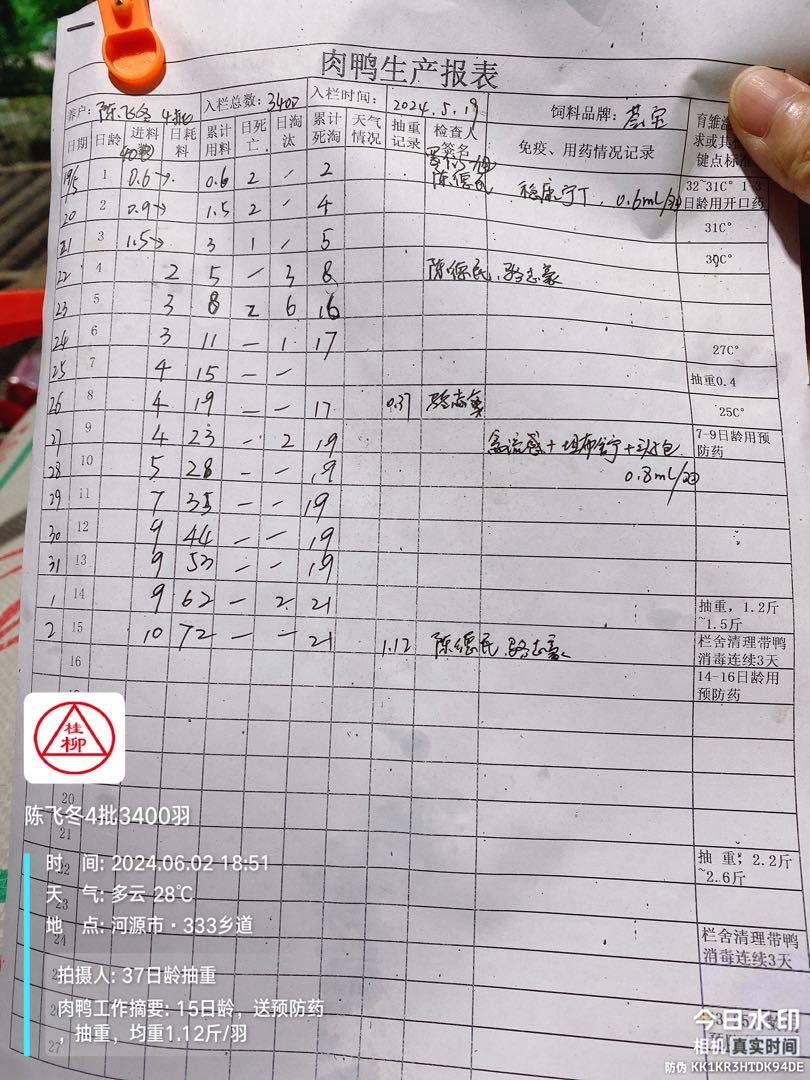 肉鸭生产报表
养户: 陈飞冬 4批 入栏总数: 3400 入栏时间: 2024.5.19 饲料品牌:
日期 日龄 进料 日耗料 累计用料 日死亡 日淘汰 累计死淘 天气情况 抽重记录 检查人签名 免疫、用药情况记录
40粒
19/5 1 0.6→ 0.6 2 - 2 陈德民 稳康宁丁, 0.6mL/羽 32~31C° 1-3日龄用开口药
20 2 0.9→ 1.5 2 - 4 31C°
21 3 1.5→ 3 1 - 5 30C°
22 4 2 5 - 3 8 陈德民, 骆志豪
23 5 3 8 2 6 16
24 6 3 11 - 1 17 27C°
25 7 4 15 - - 抽重0.4
26 8 4 19 - - 17 0.37 骆志豪 25C°
27 9 4 23 - 2 19 7-9日龄用预防药
28 10 5 28 - - 19 0.8mL/羽
29 11 7 35 - - 19
30 12 9 44 - - 19
31 13 9 53 - - 19
1 14 9 62 - 2 21 抽重, 1.2斤~1.5斤
2 15 10 72 - - 21 1.12 陈德民, 骆志豪 栏舍清理带鸭消毒连续3天
16 14-16日龄用预防药
20
21
抽 重, 2.2斤~2.6斤
23
24 栏舍清理带鸭消毒连续3天
27
桂柳
陈飞冬4批3400羽
时 间: 2024.06.02 18:51
天 气: 多云 28℃
地 点: 河源市·333乡道
拍摄人: 37日龄抽重
肉鸭工作摘要: 15日龄，送预防药
，抽重，均重1.12斤/羽
今日水印
相机 真实时间
防伪 KK1KR3HTDK94DE